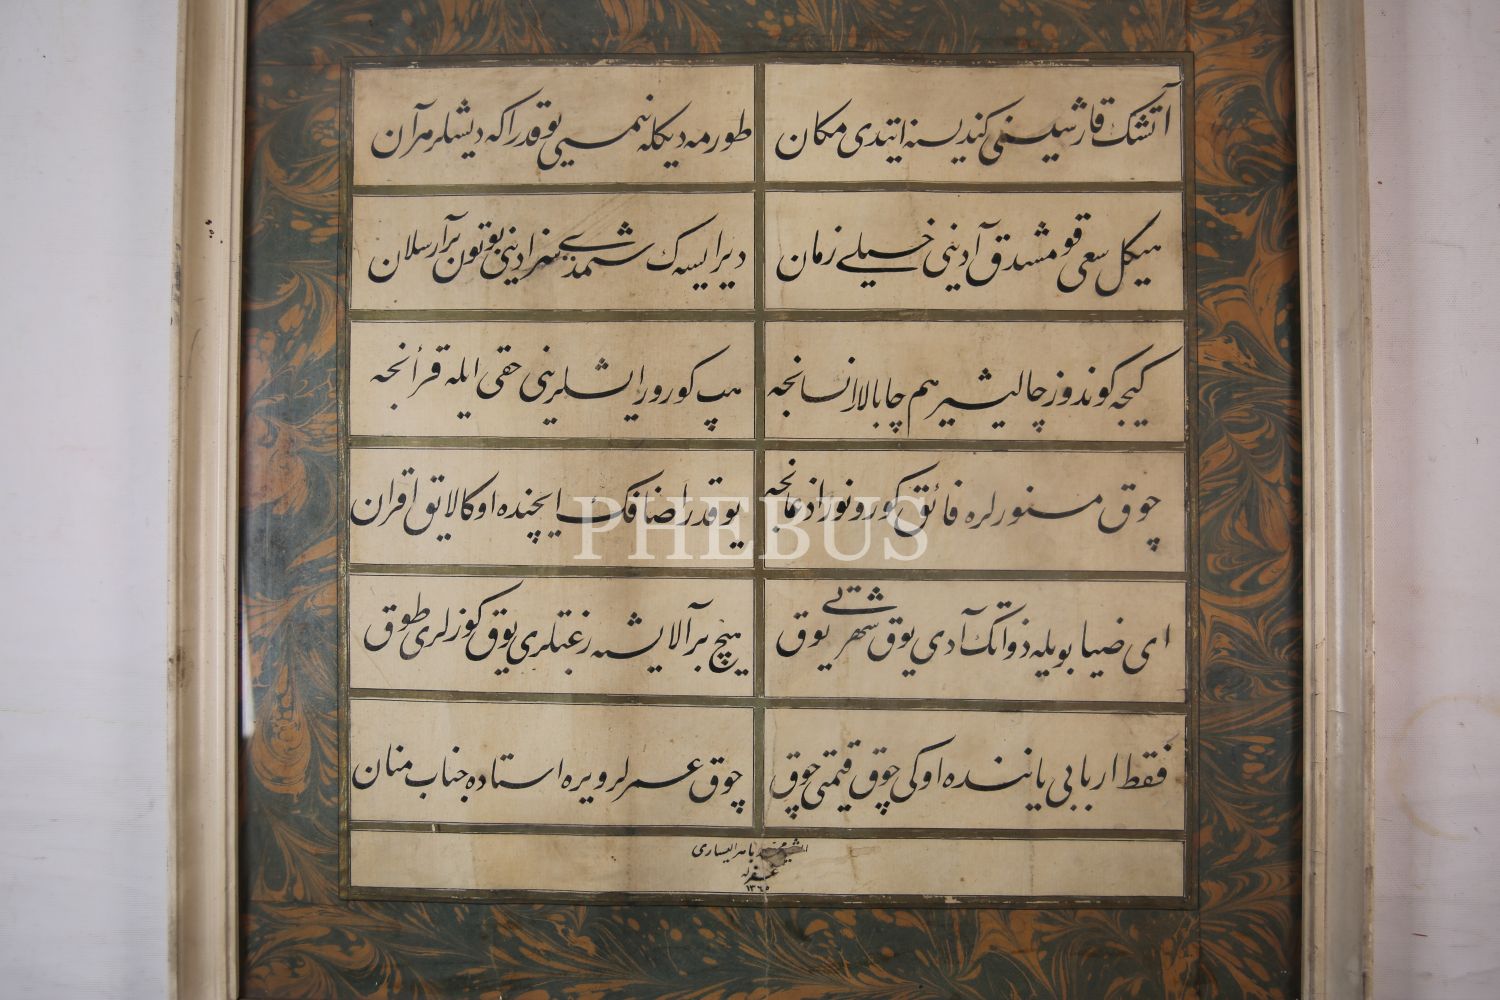 آتشك قارشیسنی كندیسنه ایتدی مكان
طورمه دیكلنمسی یوقدر اكه دیشلر هر آن
هیكل سعی قومشدق آدینی خیلی زمان
دیر ایسه ك شمدی سزادینی بوتون بر آرسلان
كیجه كوندوز چالیشیر هم چابالار انسانجه
هپ كورور ایشلرینی حقی ایله قرأنجه
چوق منورلره فائق كورونور اذعانجه
یوقدر اضافك ایچنده اوكا لایق اقران
ای ضیا بویله ذواتك آدی یوق شهرتی یوق
هیچ بر آلایشه رغبتلری یوق كوزلری طوق
فقط اربابی یاننده اوكی چوق قیمتی چوق
چوق عمرلر ویره استاده جناب منان
PHEBUS
الیساری
غفرله
١٣٦٥